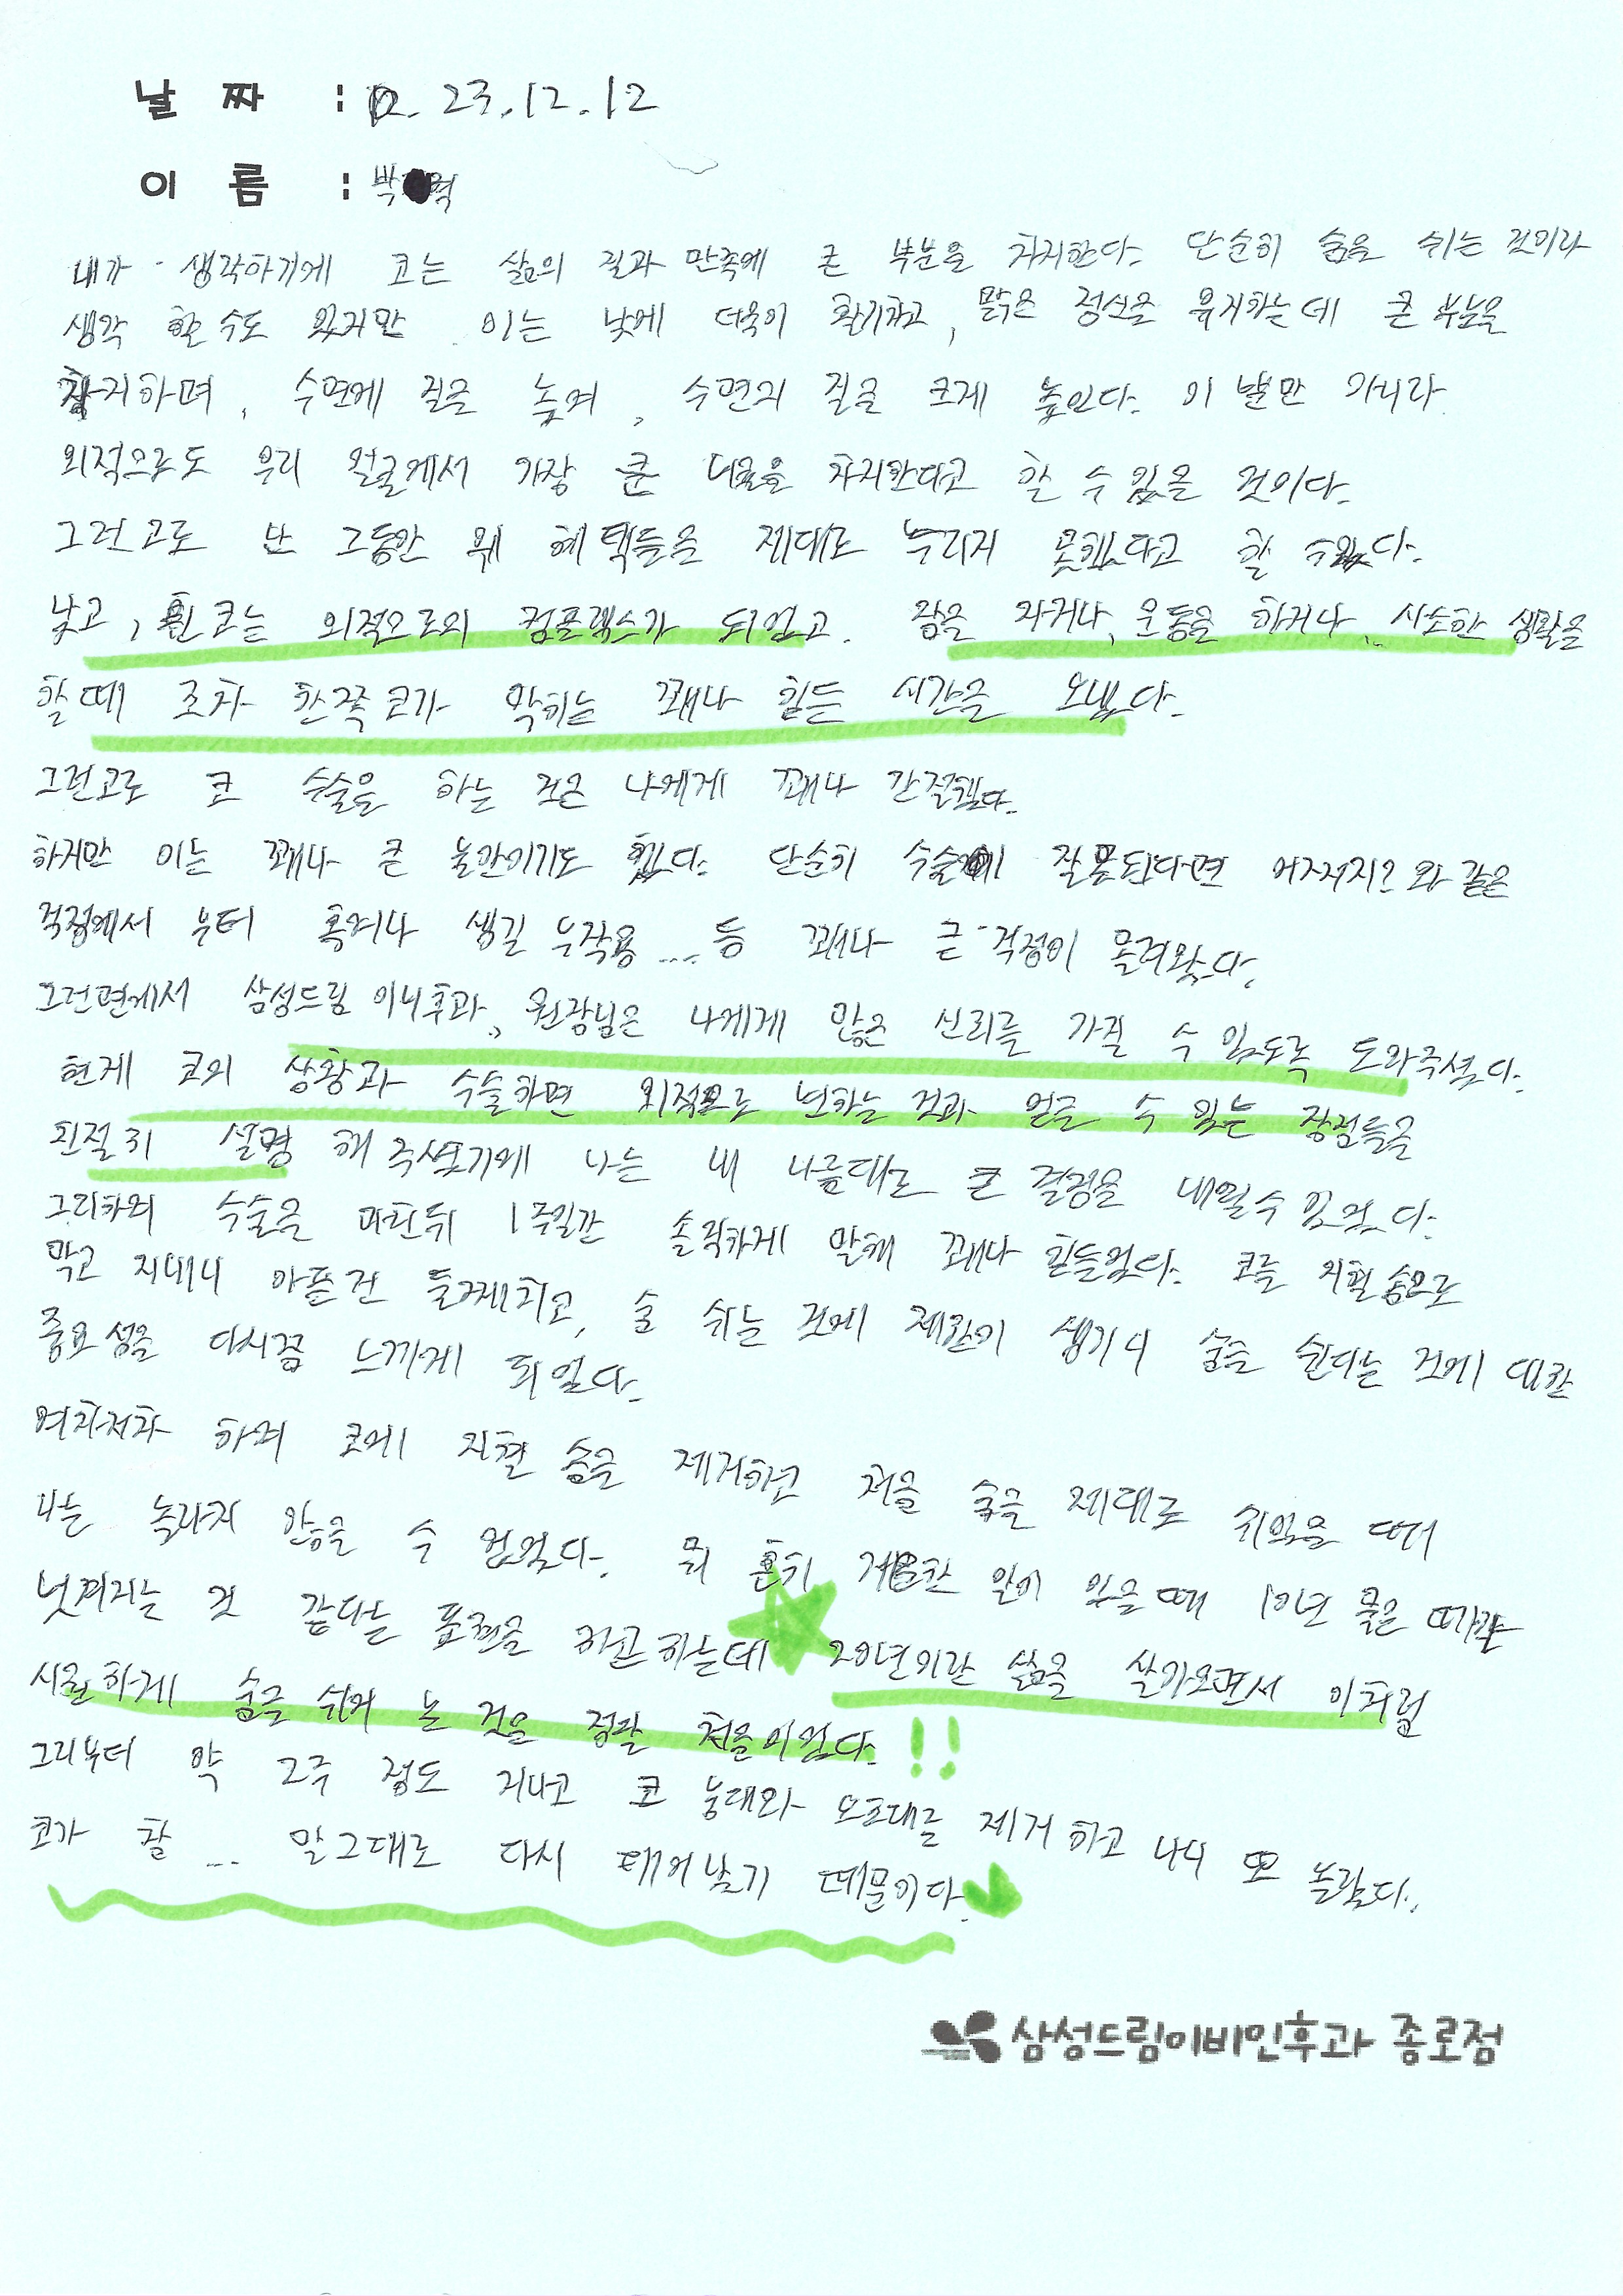 날 짜 : 23.12.12
이 름 : 박 혁
내가 생각하기에 코는 삶의 질과 만족에 큰 부분을 차지한다. 단순히 숨을 쉬는 것이라
생각 할 수도 있지만 이는 낮에 더욱이 활기차고, 맑은 정신을 유지하는데 큰 부분을
차지하며, 수면에 질을 높여, 수면의 질을 크게 높인다. 이 뿐만 아니라
외적으로도 우리 얼굴에서 가장 큰 비율을 차지한다고 할 수 있을 것이다.
그런고로 난 그동안 위 혜택들을 제대로 누리지 못했다고 할 수있다.
낮고, 휜 코는 외적으로의 컴플렉스가 되었고. 잠을 자거나, 운동을 하거나, 사소한 생활을
할 때 조차 한쪽 코가 막히는 꽤나 힘든 시간을 보냈다.
그런고로 코 수술을 하는 것은 나에게 꽤나 간절했다.
하지만 이는 꽤나 큰 불안이기도 했다. 단순히 수술이 잘못된다면 어쩌지? 와 같은
걱정에서 부터 혹여나 생길 부작용 .... 등 꽤나 큰 걱정이 몰려왔다.
그런면에서 삼성드림 이비후과, 원장님은 나에게 많은 신뢰를 가질 수 있도록 도와주셨다.
현재 코의 상황과 수술하면 외적으로 변하는 것과 얻을 수 있는 장점들을
친절히 설명 해 주셨기에 나는 내 나름대로 큰 결정을 내릴수 있었다.
그리하여 수술을 마친뒤 1주일간 솔직하게 말해 꽤나 힘들었다. 코를 지혈 솜으로
막고 지내니 아픈건 둘째치고, 숨 쉬는 것에 제한이 생기니 숨을 쉰다는 것에 대한
중요성을 다시끔 느끼게 되었다.
여차저차 하여 코에 지혈 솜을 제거하고 처음 숨을 제대로 쉬었을 때
나는 놀라지 않을 수 없었다. 뭐 흔히 개운한 일이 있을 때 10년 묵은 때가
벗겨지는 것 같다는 표현을 하곤 하는데 20년이란 삶을 살아오면서 이처럼
시원하게 숨을 쉬어 본 것은 정말 처음이었다. !!
그리부터 약 2주 정도 지나고 코 붕대와 보호대를 제거 하고 나니 또 놀랐다.
코가 참 ... 말 그대로 다시 태어났기 때문이다.
삼성드림이비인후과 종로점